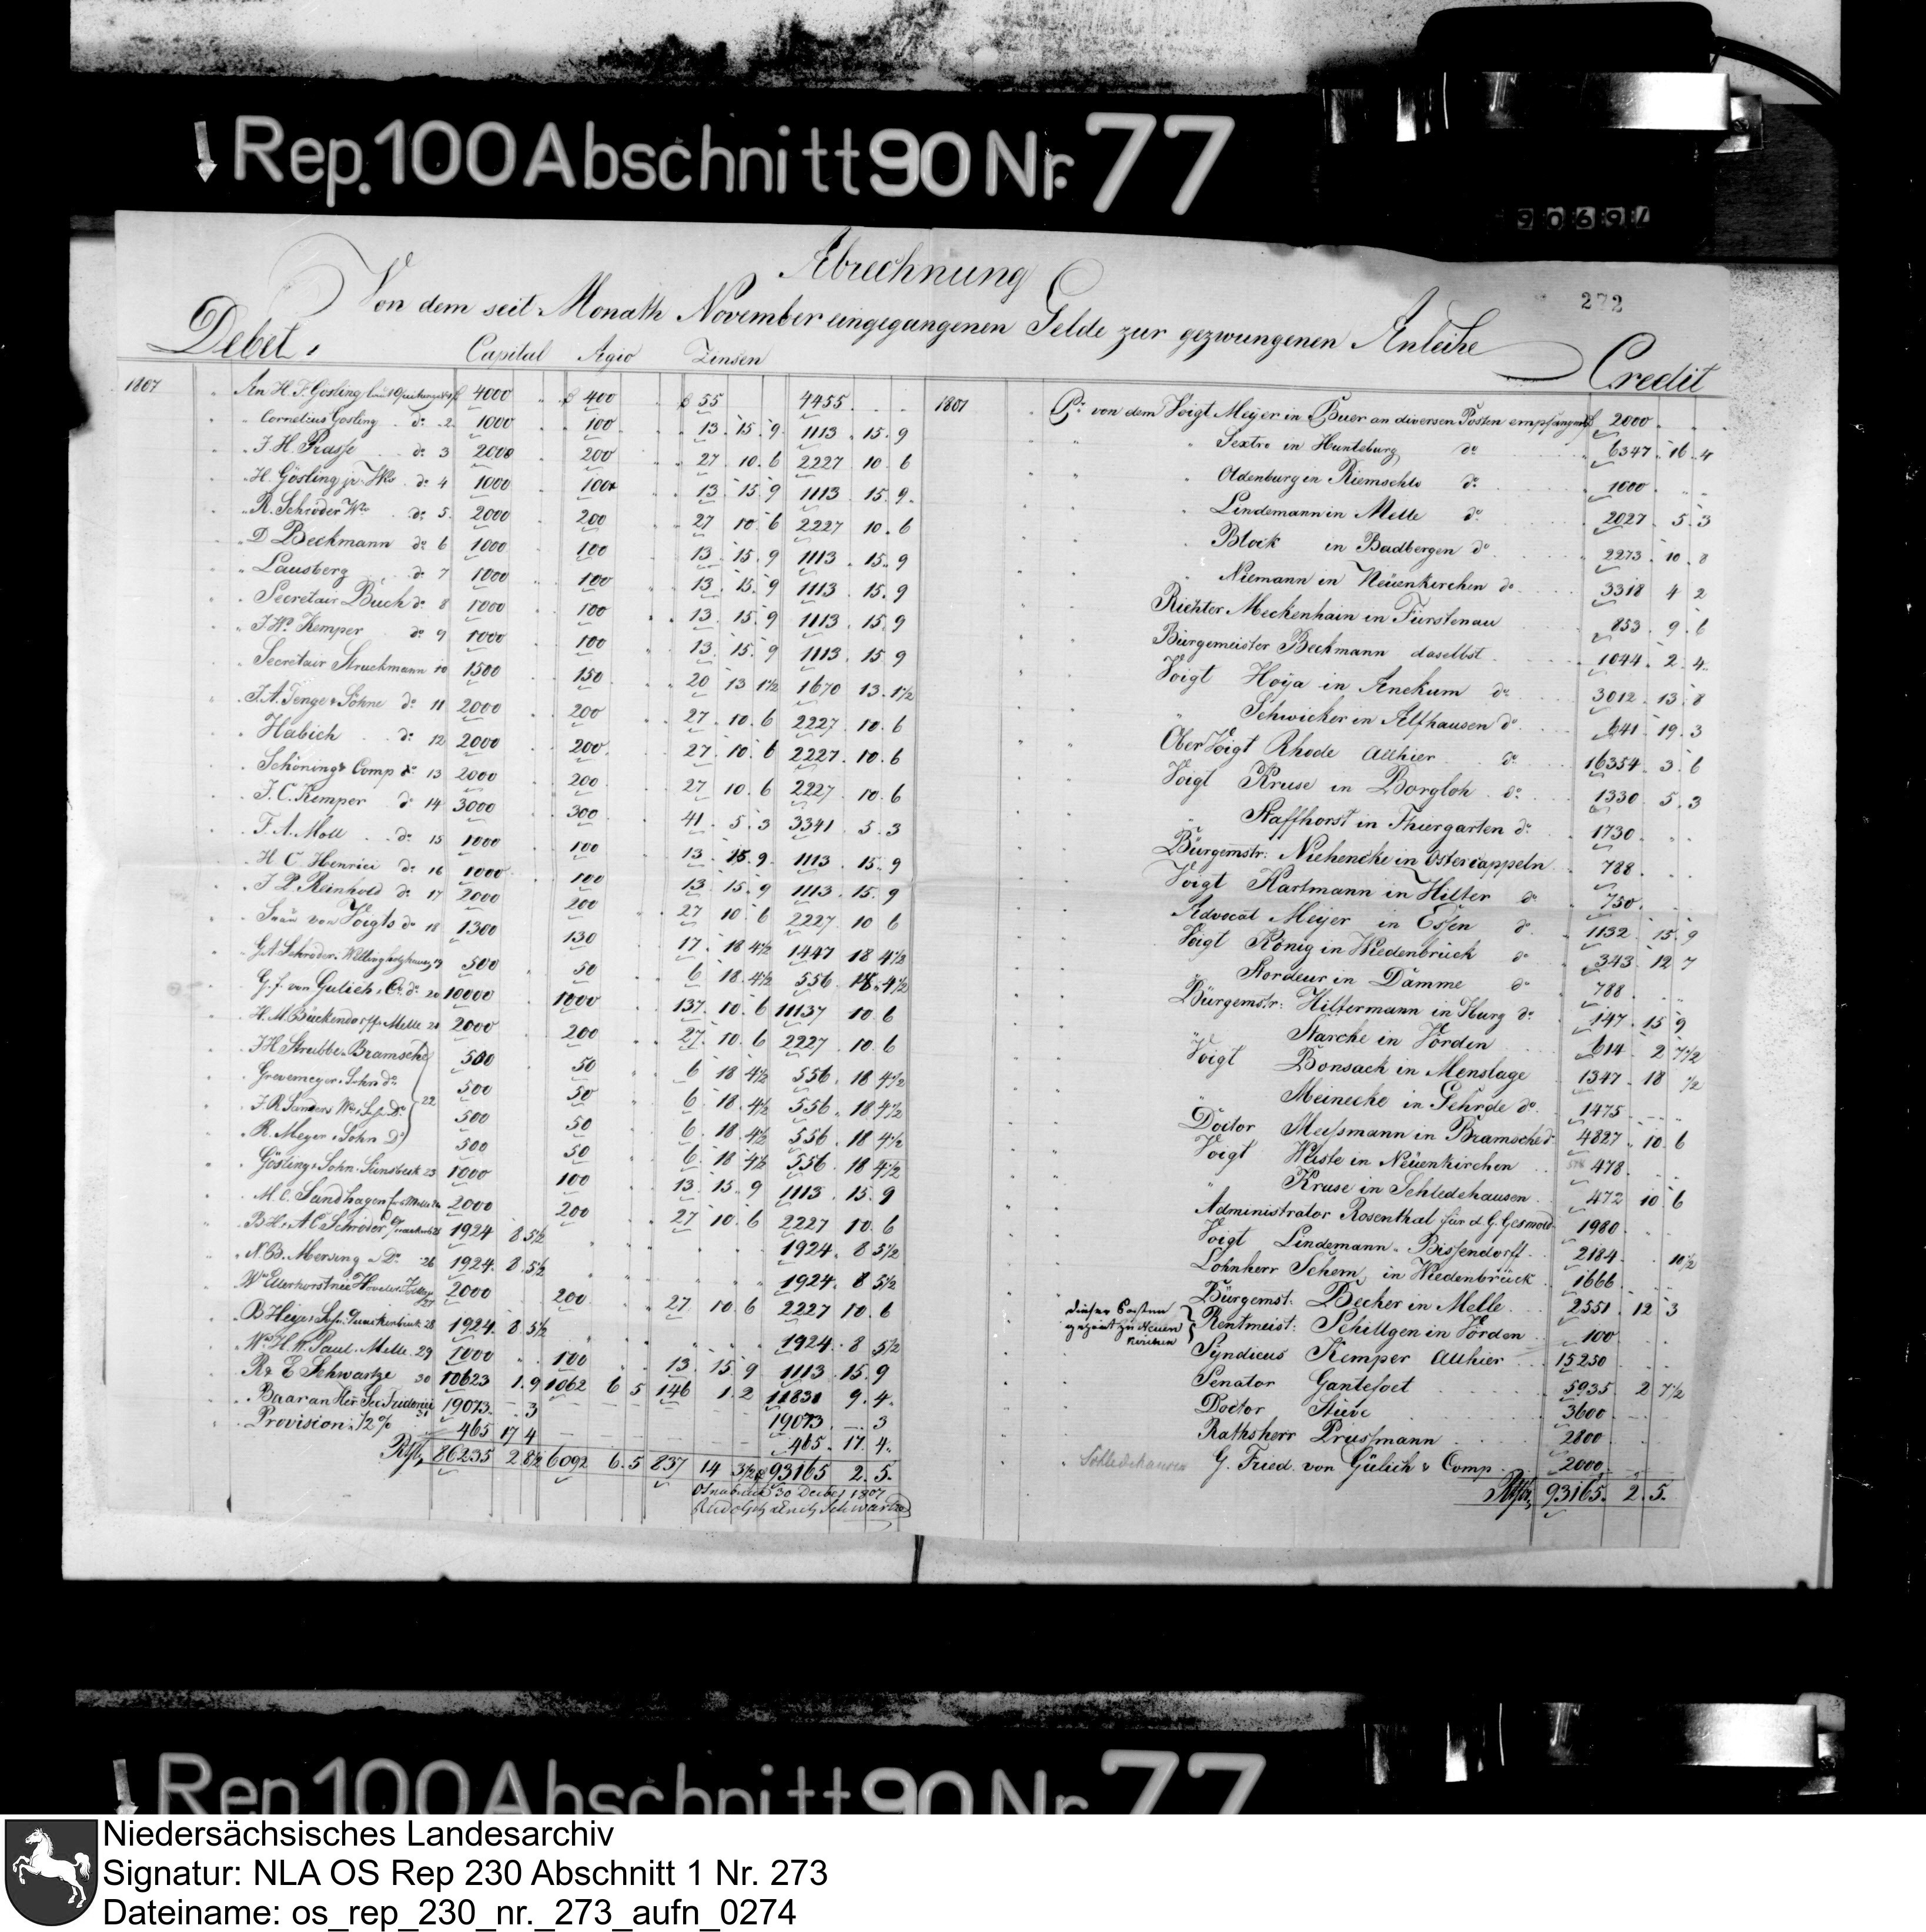 Rep. 100 Abschnitt 90 Nr. 77
90691
272
Abrechnung
Von dem seit Monath November eingegangenen Gelde zur gezwungenen Anleihe
Debet, Capital Agio Zinsen Credit
1807 An H. F. Gösling 4000 400 55 4455
Cornelius Gosling do 2 1000 100 13. 15. 9 1113. 15. 9
J. H. Prasse do 3 2000 200 27. 10. 6 2227 10. 6
H. Gösling jr. Wwe do 4 1000 100 13. 15. 9 1113. 15. 9
R. Schröder Wwe do 5. 2000 200 27 10. 6 2227 10. 6
D Beckmann do 6 1000 100 13. 15. 9 1113. 15. 9
Lausberg do 7 1000 100 13. 15. 9 1113. 15. 9
Secretair Buch do 8 1000 100 13. 15. 9 1113. 15. 9
J. Wm. Kemper do 9 1000 100 13. 15. 9 1113. 15. 9
Secretair Struckmann 10 1500 150 20 13 1½ 1670 13. 1½
J. A. Tenge & Söhne do 11 2000 200 27. 10. 6 2227. 10. 6
Habich do 12 2000 200 27. 10. 6 2227. 10. 6
Schöning & Comp do 13 2000 200 27 10. 6 2227. 10. 6
J. C. Kemper do 14 3000 300 41. 5. 3 3341. 5. 3
F. A. Moll do 15 1000 100 13. 15. 9. 1113. 15. 9
H. C. Henrici do 16 1000 100 13 15. 9 1113. 15. 9
J P. Reinhold do 17 2000 200 27 10. 6 2227 10 6
Frau von Voigts do 18 1300 130 17. 18 4½ 1447 18 4½
G. A. Schröder 19 500 50 6 18. 4½ 556 18. 4½
G. f. von Gulich & Co. do 20 10000 1000 137. 10. 6 11137 10. 6
H. M. Bückendorff Melle 21 2000 200 27. 10. 6 2227 10. 6
J H Strubbe Bramsche 500 50 6 18 4½ 556. 18 4½
Grevemeyer & Sohn do 22 500 50 6 18. 4½ 556. 18 4½
J. R. Sanders Wwe & Sohn Do 500 50 6. 18. 4½ 556. 18 4½
R. Meyer & Sohn Do 500 50 6. 18 4½ 556. 18 4½
Gösling & Sohn. 23 1000 100 13. 15. 9 1113. 15. 9
M. C. Sandhagen 24 2000 200 27 10. 6 2227 10. 6
B H. & A C Schröder 25 1924 8 5½ 1924. 8 5½
N. B. Mersing Do 26 1924. 8. 5½ 1924. 8 5½
27 2000 200 27 10. 6 2227 10. 6
B Heye & Sohn Quackenbrück 28 1924. 8 5½ 1924. 8 5½
Wwe H. W. Paul. Melle. 29 1000 100 13. 15 9 1113 15. 9
R & E Schwartze 30 10623 1. 9 1062 6 5 146 1. 2 11831 9. 4
Baar an Herr 31 19073. – 3 19073 – 3
Provision ½ % 465 17 4 465. 17. 4.
Rthlr 86235 2 8½ 6092 6. 5 837 14 3½ 93165 2. 5.
Osnabrück 30 Decbr 1807
Rudolph & Eniz Schwartze
1807 Pr. von dem Voigt Meyer in Buer an diversen Posten empfangen 2000
Sextro in Hunteburg do 6347. 16. 4
Oldenburg in Riemschlo do 1000
Lindemann in Melle do 2027. 5. 3
Block in Badbergen do 2273. 10. 8
Niemann in Neüenkirchen do 3318 4 2
Richter Meckenhain in Fürstenau 853. 9. 6
Bürgemeister Beckmann daselbst 1044. 2. 4.
Voigt Hoÿa in Anckum do 3012. 13. 8
Schwicker in Alfhausen do 641. 19. 3
Ober Voigt Rhode Allhier do 16354. 3. 6
Voigt Kruse in Borgloh. do 1330. 5. 3
Staffhorst in Thiergarten do 1730.
Bürgemstr: Niehencke in Ostercappeln 788.
Voigt Hartmann in Hilter do 750.
Advocat Meijer in Essen do 1132. 15. 9
Voigt König in Wiedenbrück do 343. 12 7
Nordeur in Damme do 788
Bürgemstr: Hiltermann in Iburg do 147. 15 9
Starcke in Vörden 614. 2 7½
Voigt Bonsack in Menslage 1347. 18 ½
Meinecke in Gehrde do. 1475
Doctor Meissmann in Bramsche do 4827. 10. 6
Voigt Weiste in Neüenkirchen 478.
Kruse in Schledehausen 472 10 6
Administrator Rosenthal für d. G. Gesmold 1980
Voigt Lindemann. Bissendorff. 2184. 10½
Lohnherr Schem in Wiedenbrück 1666
Bürgemst: Becker in Melle. 2551. 12. 3
dieser Posten gehört zu Neuen kirchen
Rentmeist: Schillgen in Vörden 100
Syndicus Kemper Allhier 15250
Senator Gantefoet 5935. 2 7½
Doctor Stüve 3600
Rathsherr Prussmann 2800
Schledehausen G. Fried. von Gülich & Comp. 2000
Rthlr 93165. 2. 5.
Rep 100 Abschnitt 90 Nr 77
Niedersächsisches Landesarchiv
Signatur: NLA OS Rep 230 Abschnitt 1 Nr. 273
Dateiname: os_rep_230_nr._273_aufn_0274